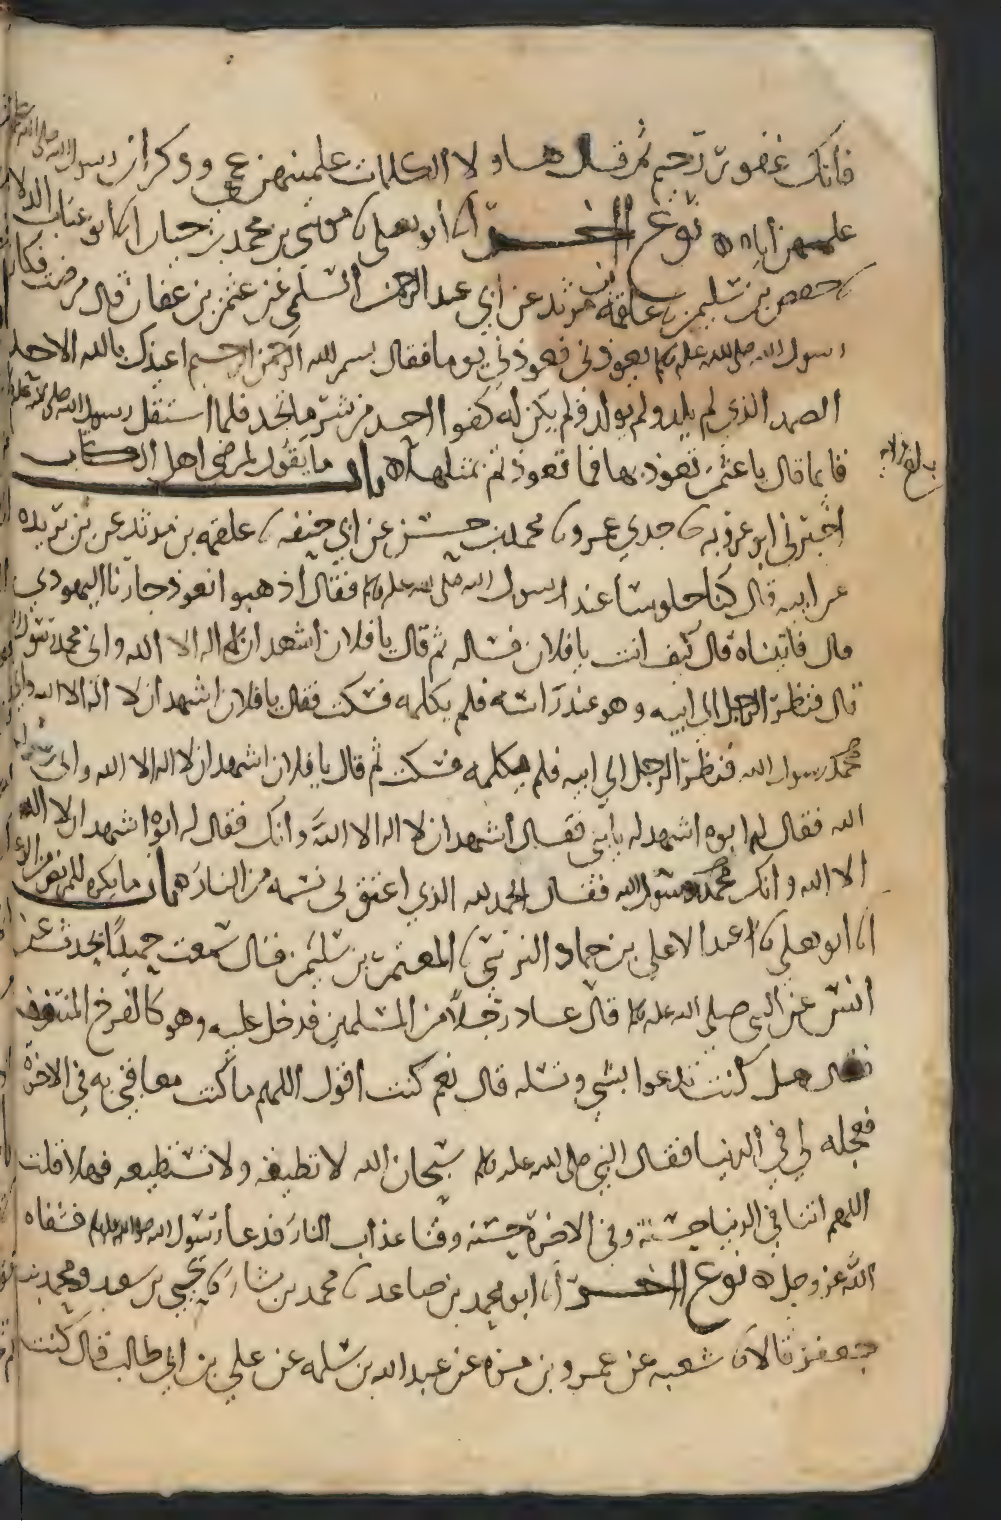 فانك غفور رحيم ثم قال هاولا الكلمات علمنيهن عمي وذكر ان رسول الله صلى الله عليه
علمهن اياه نوع اخر انا ابو يعلى نا موسى بن محمد بن حيان نا ابو عتاب الدلال
نا حفص بن سليمن نا علقمه بن مرثد عن ابي عبد الرحمن السلمي عن عثمن بن عفان قال مرضت فكان
رسول الله صلى الله عليه وسلم يعوذني فعوذني يوما فقال بسم الله الرحمن الرحيم اعيذك بالله الاحد
الصمد الذي لم يلد ولم يولد ولم يكن له كفوا احد من شر ما تجد فلما استقل رسول الله صلى الله عليه
قايما قال يا عثمن تعوذ بها فما تعوذتم بمثلها باب ما يقول لمرضى اهل الكتاب
بلغ مقابلة
اخبرني ابو عروبه نا جدي عمرو نا محمد بن حسن عن ابي حنيفه نا علقمه بن مرثد عن بن بريده
عن ابيه قال كنا جلوسا عند رسول الله صلى الله عليه وسلم فقال اذهبوا نعوذ جارنا اليهودي
قال فاتيناه قال كيف انت يا فلان فساله ثم قال يا فلان اشهد ان لا اله الا الله واني محمد رسول الله
قال فنظر الرجل الى ابيه وهو عند راسه فلم يكلمه فسكت فقال يا فلان اشهد ان لا اله الا الله واني
محمد رسول الله فنظر الرجل الى ابيه فلم يكلمه فسكت ثم قال يا فلان اشهد ان لا اله الا الله واني رسول
الله فقال له ابوه اشهد له يا بني فقال اشهد ان لا اله الا الله وانك فقال له ابوه اشهد ان لا اله
الا الله وانك محمد رسول الله فقال الحمد لله الذي اعتق لي نسمه من النار باب ما يكره للمريض من الدعا
انا ابو يعلى نا عبد الاعلى بن حماد النرسي نا المعتمر بن سليمن قال سمعت حميدا يحدث عن
انس عن النبي صلى الله عليه وسلم قال عاد رجلا من المسلمين فدخل عليه وهو كالفرخ المنتوف
فقال هل كنت تدعوا بشي وتسله قال نعم كنت اقول اللهم ما كنت معاقبي به في الاخرة
فعجله لي في الدنيا فقال النبي صلى الله عليه وسلم سبحان الله لا تطيقه ولا تستطيعه فهلا قلت
اللهم اتنا في الدنيا حسنة وفي الاخرة حسنة وقنا عذاب النار فدعا رسول الله صلى الله عليه وسلم فشفاه
الله عز وجل نوع اخر انا ابو محمد بن صاعد نا محمد بن بشار نا يحيى بن سعيد ومحمد بن
جعفر قالا نا شعبه عن عمرو بن مره عن عبد الله بن سلمه عن علي بن ابي طالب قال كنت